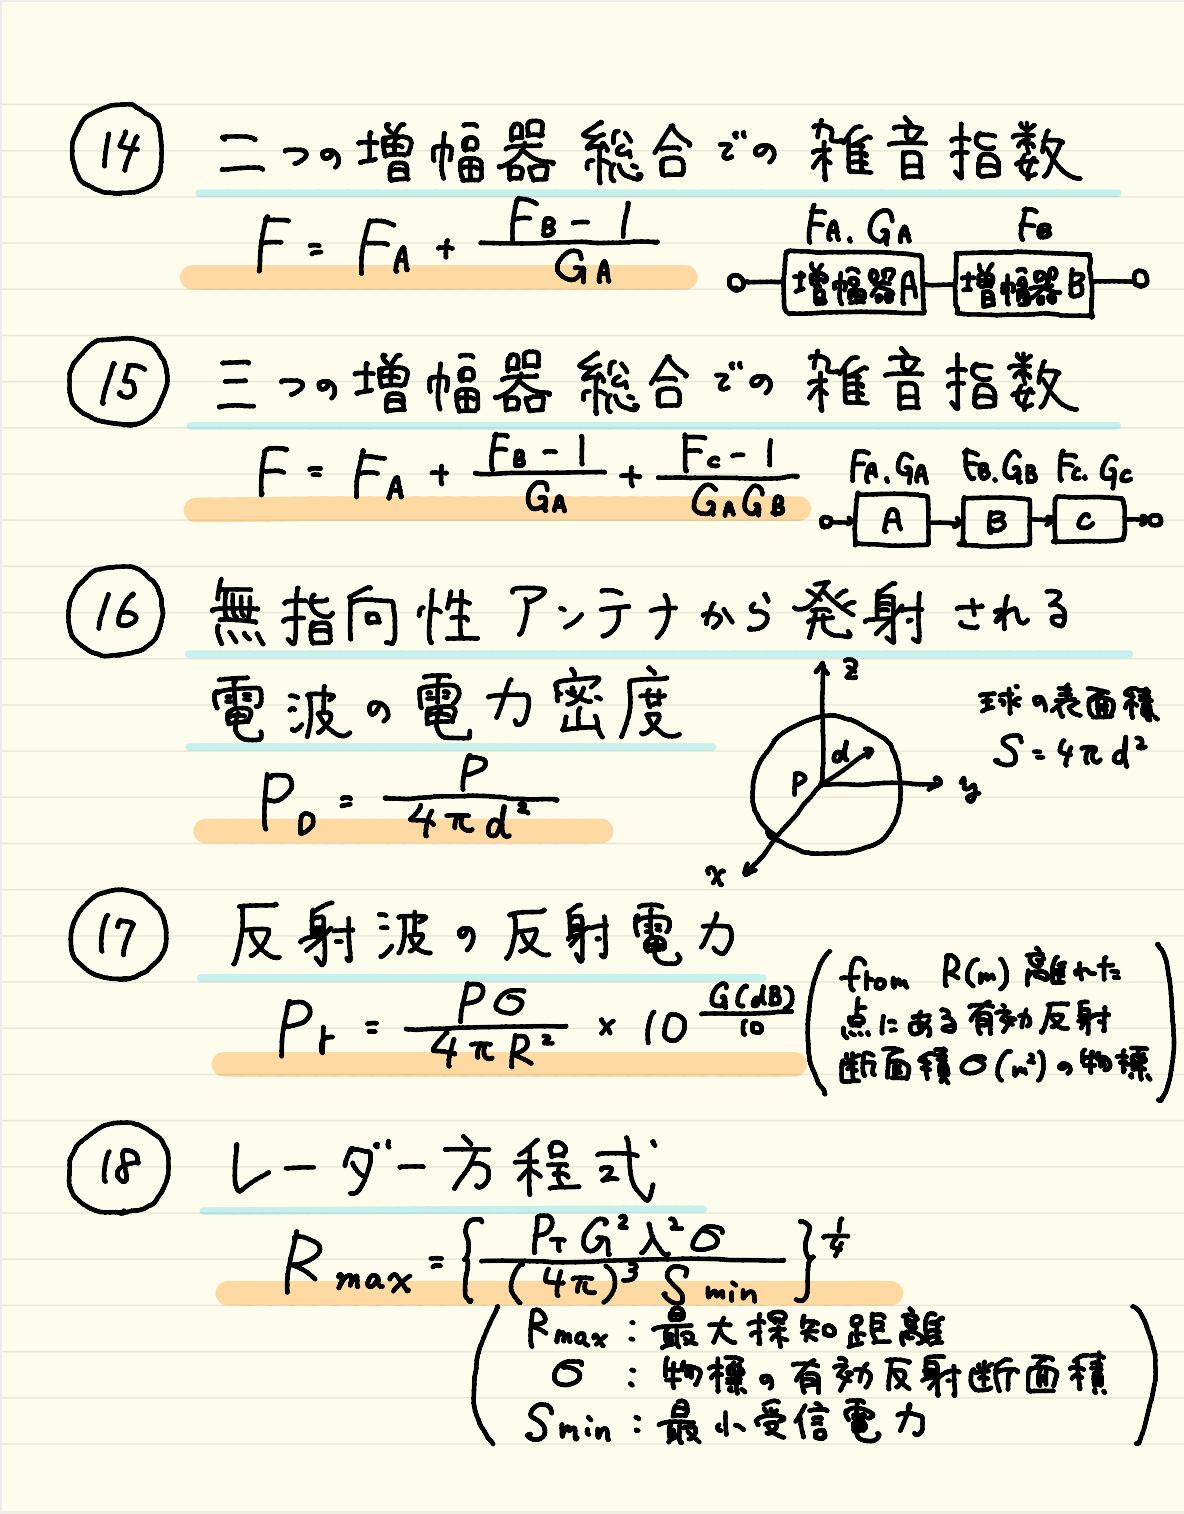 ⑭ 二つの増幅器総合での雑音指数
F = F_A + (F_B - 1)/G_A
F_A. G_A F_B
増幅器A 増幅器B
⑮ 三つの増幅器総合での雑音指数
F = F_A + (F_B - 1)/G_A + (F_C - 1)/(G_A G_B)
F_A. G_A F_B. G_B F_C. G_C
A B C
⑯ 無指向性アンテナから発射される
電波の電力密度
P_D = P/(4πd²)
z
d
P
y
x
球の表面積
S = 4πd²
⑰ 反射波の反射電力
P_r = Pσ/(4πR²) × 10^(G(dB)/10)
(from R(m) 離れた
点にある有効反射
断面積σ(m²)の物標)
⑱ レーダー方程式
R_max = {P_T G² λ² σ/((4π)³ S_min)}^(1/4)
(R_max : 最大探知距離
σ : 物標の有効反射断面積
S_min : 最小受信電力)